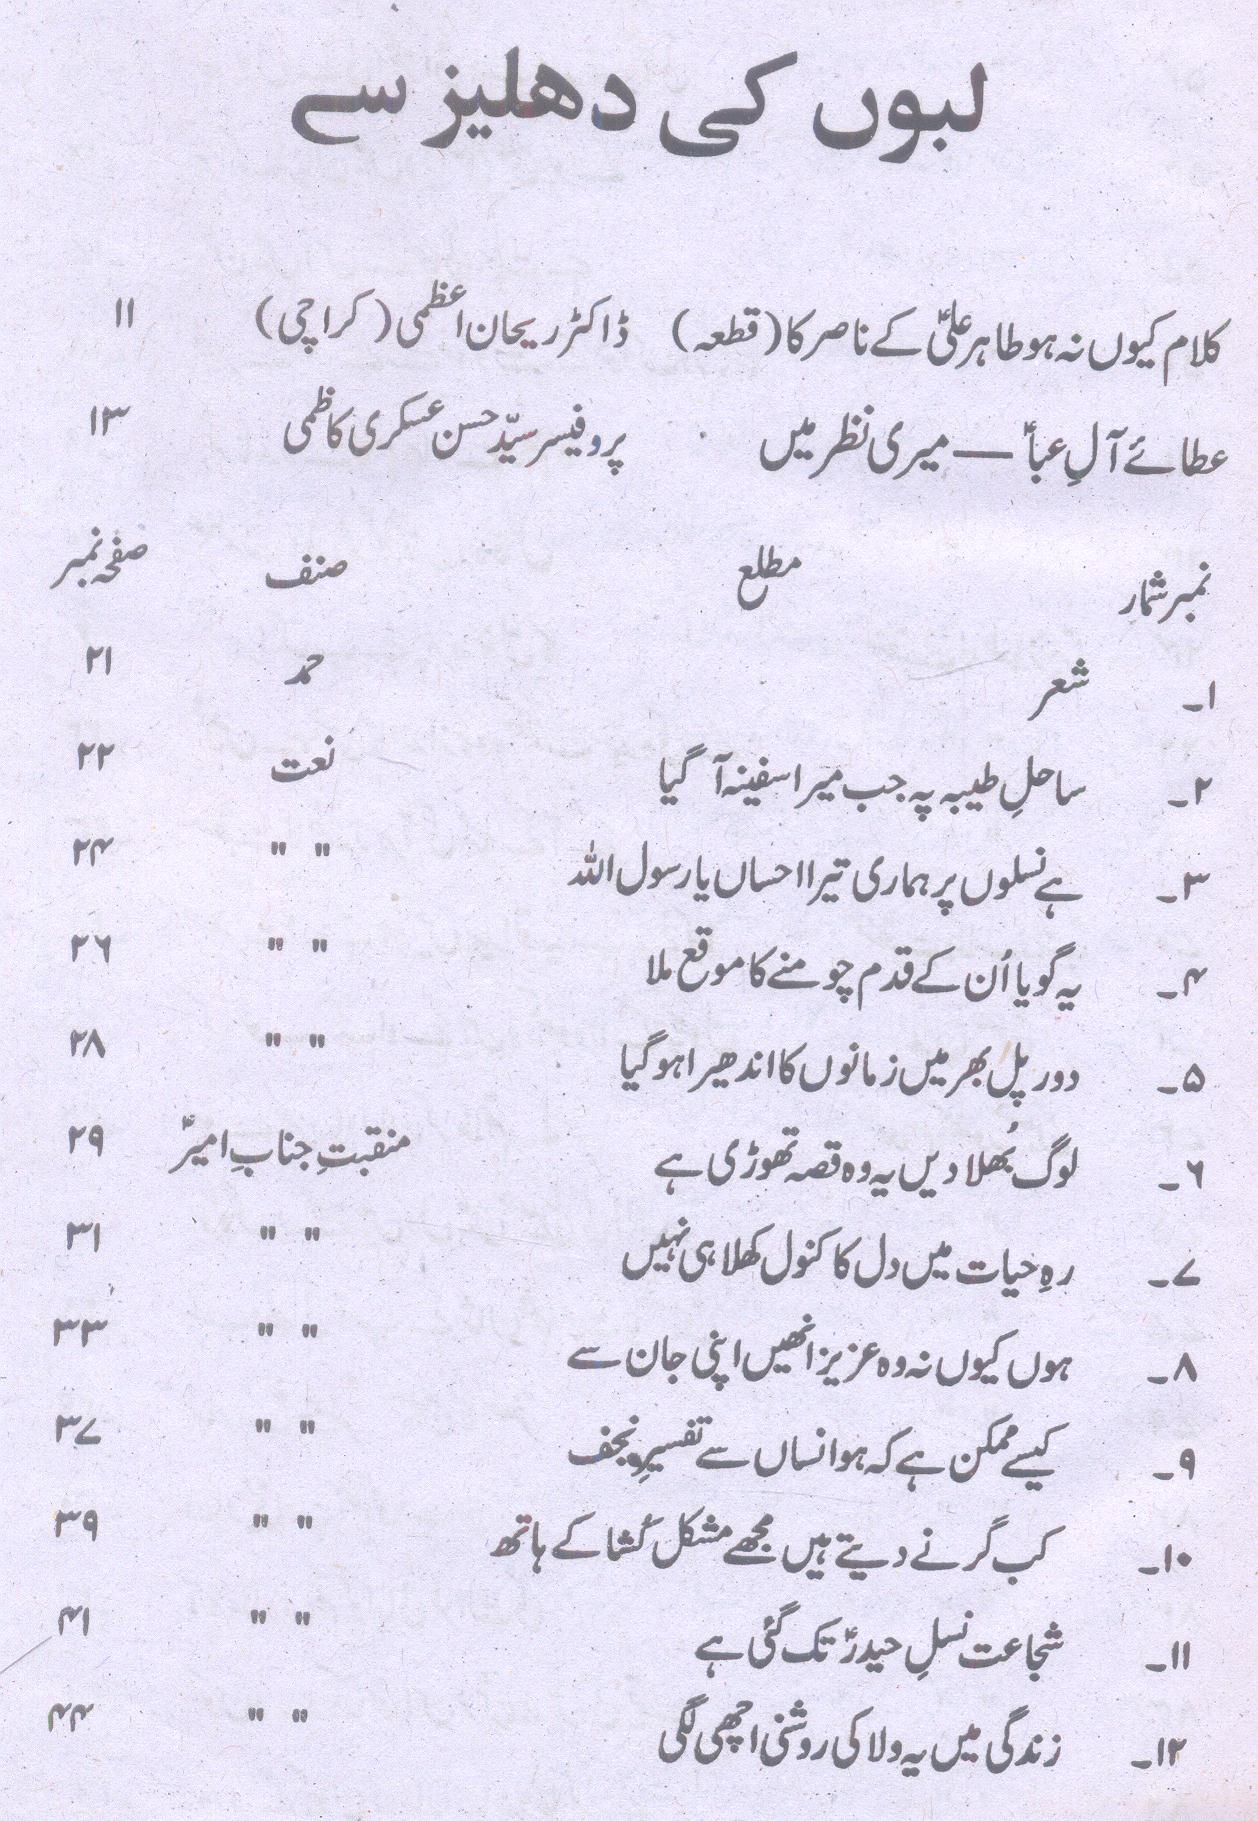 لبوں کی دھلیز سے
کلام کیوں نہ ہو طاہر علیؑ کے ناصر کا (قطعہ) ڈاکٹر ریحان اعظمی (کراچی) ۱۱
عطائے آلِ عباؑ — میری نظر میں پروفیسر سیّد حسن عسکری کاظمی ۱۳
نمبر شمار مطلع صنف صفحہ نمبر
۱۔ شعر حمد ۲۱
۲۔ ساحلِ طیبہ پہ جب میرا سفینہ آ گیا نعت ۲۲
۳۔ ہے نسلوں پر ہماری تیرا احساں یا رسول اللہ " " ۲۴
۴۔ یہ گویا اُن کے قدم چومنے کا موقع ملا " " ۲۶
۵۔ دور پل بھر میں زمانوں کا اندھیرا ہو گیا " " ۲۸
۶۔ لوگ بُھلا دیں یہ وہ قصہ تھوڑی ہے منقبتِ جنابِ امیرؑ ۲۹
۷۔ رہِ حیات میں دل کا کنول کھلا ہی نہیں " " ۳۱
۸۔ ہوں کیوں نہ وہ عزیز انھیں اپنی جان سے " " ۳۳
۹۔ کیسے ممکن ہے کہ ہو انساں سے تفسیرِ نجف " " ۳۷
۱۰۔ کب گرنے دیتے ہیں مجھے مشکل کُشا کے ہاتھ " " ۳۹
۱۱۔ شجاعت نسلِ حیدرؑ تک گئی ہے " " ۴۱
۱۲۔ زندگی میں یہ ولا کی روشنی اچھی لگی " " ۴۴